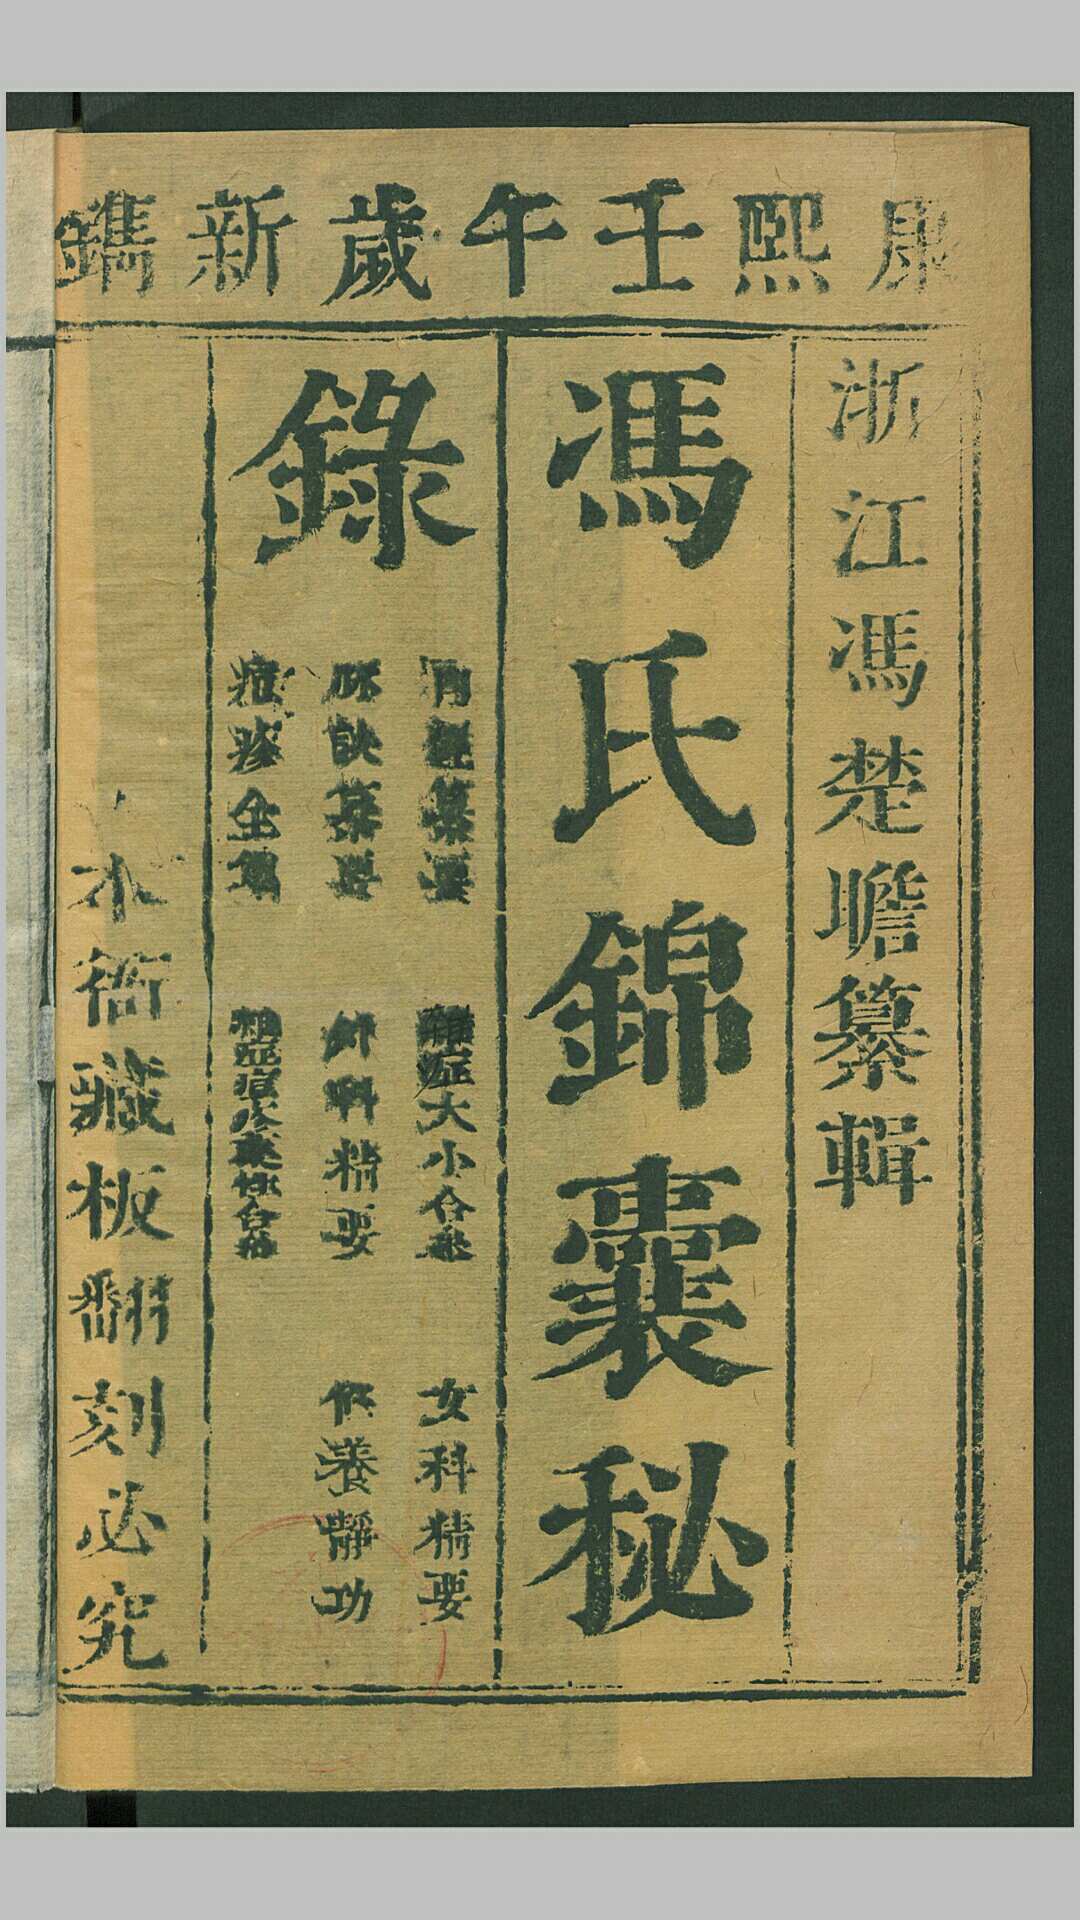 康熙壬午歲新鐫
浙江馮楚瞻纂輯
馮氏錦囊秘
錄
內經纂要
雜症大小合參
女科精要
脉訣纂要
外科精要
修養靜功
痘疹全集
本衙藏板翻刻必究